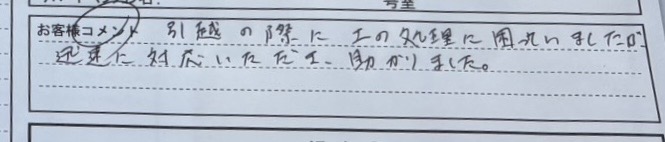 号室
お客様コメント 引越の際に土の処理に困っていましたが
迅速に対応いただき、助かりました。